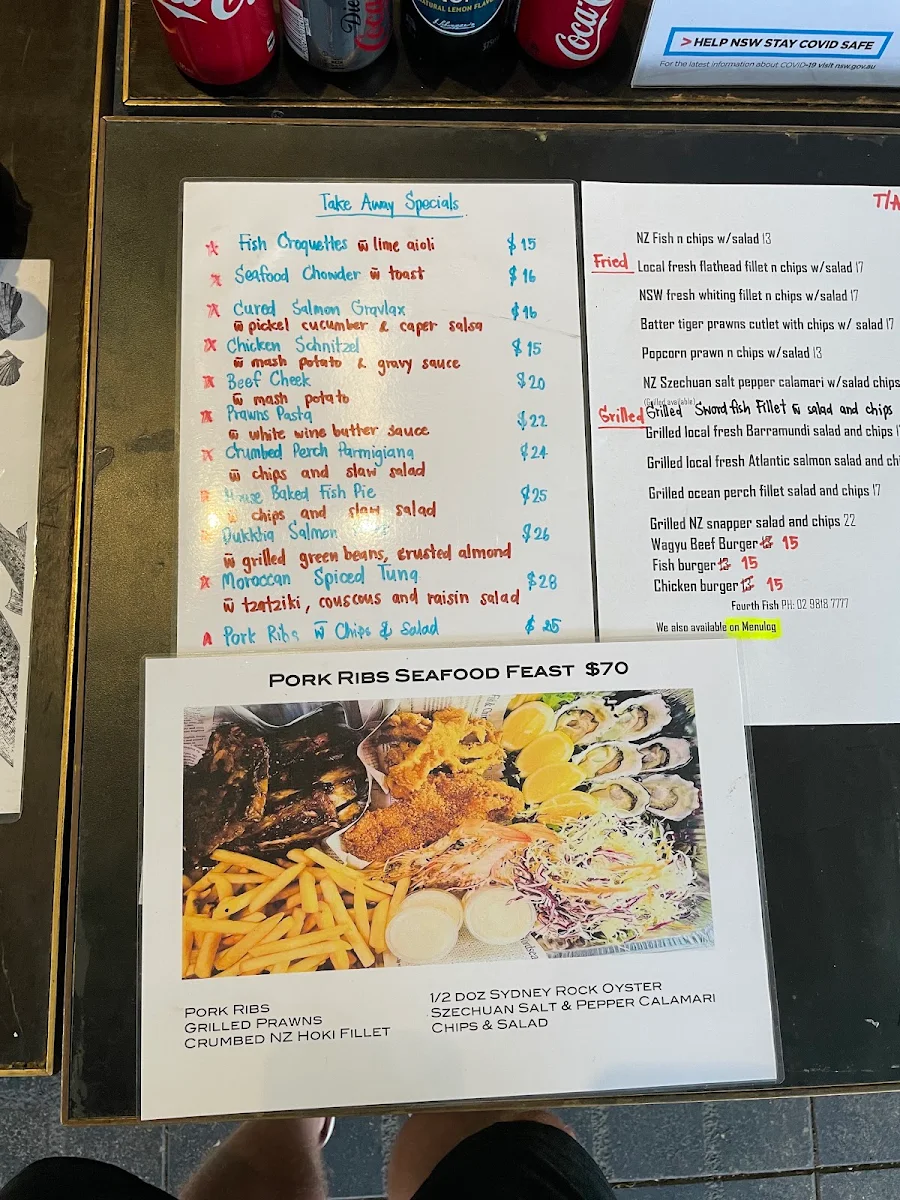 Coca-Cola
Diet
Coca
NATURAL LEMON FLAV
Coca
> HELP NSW STAY COVID SAFE
For the latest information about COVID-19 visit nsw.gov.au
Take Away Specials
Fish Croquettes w̄ lime aioli $15
Seafood Chowder w̄ toast $16
Cured Salmon Gravlax $16
w̄ pickel cucumber & caper salsa
Chicken Schnitzel $15
w̄ mash potato & gravy sauce
Beef Cheek $20
w̄ mash potato
Prawns Pasta $22
w̄ white wine butter sauce
Crumbed Perch Parmigiana $24
w̄ chips and slaw salad
House Baked Fish Pie $25
w̄ chips and slaw salad
Dukkha Salmon $26
w̄ grilled green beans, crusted almond
Moroccan Spiced Tuna $28
w̄ tzatziki, couscous and raisin salad
Pork Ribs w̄ Chips & Salad $25
T/A
NZ Fish n chips w/salad 13
Fried
Local fresh flathead fillet n chips w/salad 17
NSW fresh whiting fillet n chips w/salad 17
Batter tiger prawns cutlet with chips w/ salad 17
Popcorn prawn n chips w/salad 13
NZ Szechuan salt pepper calamari w/salad chips
(Grilled available)
Grilled
Grilled Swordfish Fillet w̄ salad and chips
Grilled local fresh Barramundi salad and chips 1
Grilled local fresh Atlantic salmon salad and ch
Grilled ocean perch fillet salad and chips 17
Grilled NZ snapper salad and chips 22
Wagyu Beef Burger 13 15
Fish burger 13 15
Chicken burger 13 15
Fourth Fish PH: 02 9818 7777
We also available on Menulog
PORK RIBS SEAFOOD FEAST $70
PORK RIBS
GRILLED PRAWNS
CRUMBED NZ HOKI FILLET
1/2 DOZ SYDNEY ROCK OYSTER
SZECHUAN SALT & PEPPER CALAMARI
CHIPS & SALAD